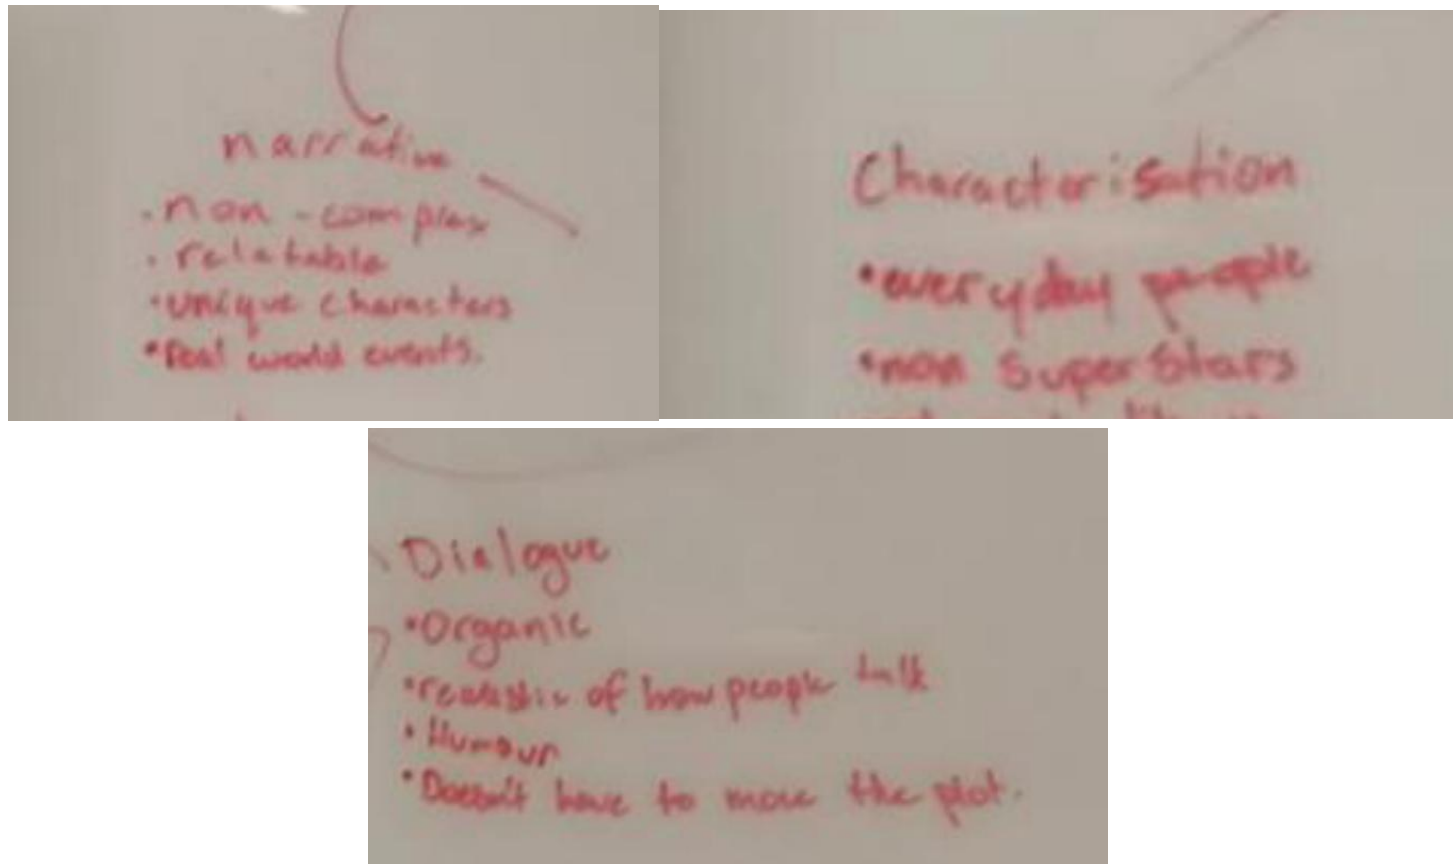 narrative
. non - complex
. relatable
• unique characters
• Real world events.
Characterisation
• everyday people
• non SuperStars
Dialogue
• Organic
• realistic of how people talk
• Humour
• Doesn't have to move the plot.